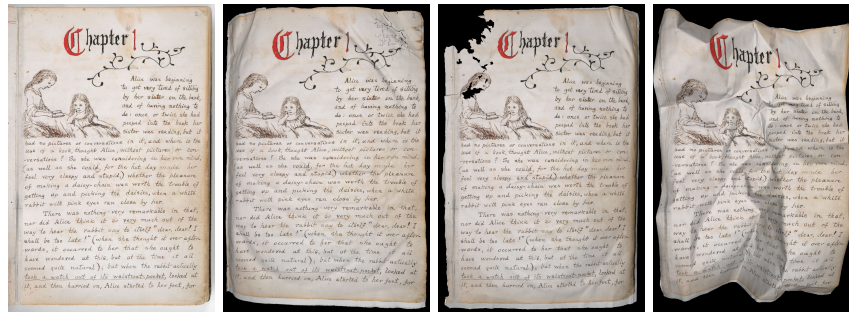 Chapter 1
Alice was beginning
to get very tired of sitting
by her sister on the bank,
and of having nothing to
do: once or twice she had
peeped into the book her
sister was reading, but it
had no pictures or conversations in it, and where is the
use of a book, thought Alice, without pictures or con-
versations? So she was considering in her own mind,
(as well as she could, for the hot day made her
feel very sleepy and stupid,) whether the pleasure
of making a daisy-chain was worth the trouble of
getting up and picking the daisies, when a white
rabbit with pink eyes ran close by her.
There was nothing very remarkable in that,
nor did Alice think it so very much out of the
way to hear the rabbit say to itself "dear, dear! I
shall be too late!" (when she thought it over after-
wards, it occurred to her that she ought to
have wondered at this, but at the time it all
seemed quite natural); but when the rabbit actually
took a watch out of its waistcoat-pocket, looked at
it, and then hurried on, Alice started to her feet, for
Chapter 1
Alice was beginning
to get very tired of sitting
by her sister on the bank,
and of having nothing to
do: once or twice she had
peeped into the book her
sister was reading, but it
had no pictures or conversations in it, and where is the
use of a book, thought Alice, without pictures or con-
versations? So she was considering in her own mind,
(as well as she could, for the hot day made her
feel very sleepy and stupid,) whether the pleasure
of making a daisy-chain was worth the trouble of
getting up and picking the daisies, when a white
rabbit with pink eyes ran close by her.
There was nothing very remarkable in that,
nor did Alice think it so very much out of the
way to hear the rabbit say to itself "dear, dear! I
shall be too late!" (when she thought it over after-
wards, it occurred to her that she ought to
have wondered at this, but at the time it all
seemed quite natural); but when the rabbit actually
took a watch out of its waistcoat-pocket, looked at
it, and then hurried on, Alice started to her feet, for
Chapter 1
Alice was beginning
to get very tired of sitting
by her sister on the bank,
and of having nothing to
do: once or twice she had
peeped into the book her
sister was reading, but it
had no pictures or conversations in it, and where is the
use of a book, thought Alice, without pictures or con-
versations? So she was considering in her own mind,
(as well as she could, for the hot day made her
feel very sleepy and stupid,) whether the pleasure
of making a daisy-chain was worth the trouble of
getting up and picking the daisies, when a white
rabbit with pink eyes ran close by her.
There was nothing very remarkable in that,
nor did Alice think it so very much out of the
way to hear the rabbit say to itself "dear, dear! I
shall be too late!" (when she thought it over after-
wards, it occurred to her that she ought to
have wondered at this, but at the time it all
seemed quite natural); but when the rabbit actually
took a watch out of its waistcoat-pocket, looked at
it, and then hurried on, Alice started to her feet, for
Chapter 1
Alice was beginning
to get very tired of sitting
by her sister on the bank,
and of having nothing to
do: once or twice she had
peeped into the book her
sister was reading, but it
had no pictures or conversations
use of a book, thought Alice
versations? So she was
(as well as she could,
feel very sleepy and
of making a daisy-chain
getting up and picking
rabbit with pink eyes
There was nothing remarkable in that,
nor did Alice think much out of the
way to hear the "dear, dear! I
shall be too late!" it over after-